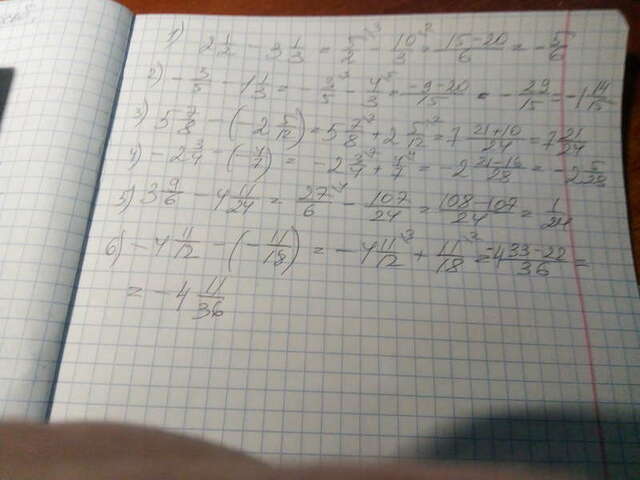 1) 2 1/2 - 3 1/3 = 5/2 - 10/3 = 15-20/6 = - 5/6
2) - 3/5 - 1 1/3 = - 3/5 - 4/3 = -9-20/15 = - 29/15 = -1 14/15
3) 5 7/8 - (-2 5/12) = 5 7/8 + 2 5/12 = 7 21+10/24 = 7 21/24
4) - 2 3/4 - (- 4/7) = - 2 3/4 + 4/7 = 2 21-16/28 = - 2 5/28
5) 3 9/6 - 4 11/24 = 27/6 - 107/24 = 108-107/24 = 1/24
6) - 4 11/12 - (- 11/18) = - 4 11/12 + 11/18 = -4 33-22/36 =
= - 4 11/36